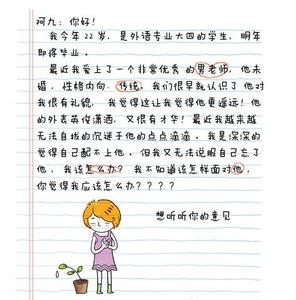 阿九：你好！
我今年22岁，是外语专业大四的学生，明年
即将毕业。
最近我爱上了一个非常优秀的男老师，他未
婚，性格内向，传统，我们很早就认识了他对
我很有礼貌，我觉得这让我觉得他更遥远！他
的外表英俊潇洒，又很有才华！最近我越来越
无法自拔的沉迷于他的点点滴滴。我是深深的
觉得自己配不上他，但我又无法说服自己忘了
他，我该怎么办？我不知道该怎样面对他，
你觉得我应该怎么办？？？？
想听听你的意见